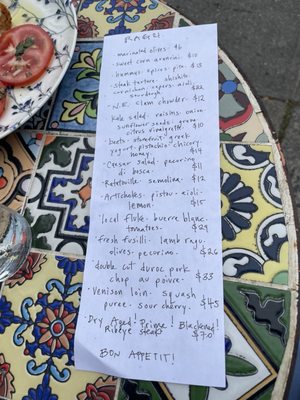 RAGU
marinated olives · $6
sweet corn arancini · $10
hummus · spices · pita · $13
steak tartare · shishito
cornichon · capers · aioli
sourdough · $22
N.E. Clam chowder · $12
Kale salad · raisins · onion
sunflower seeds · grana
citrus vinaigrette · $10
beets · stonefruit · greek
yogurt · pistachio · chicory
honey · $14
Caesar salad · pecorino
di bosca · $11
Ratatouille · semolina · $12
Artichokes · pistou · aioli
lemon · $15
local fluke · buerre blanc
tomatoes · $29
fresh fusilli · lamb ragu
olives · pecorino · $26
double cut duroc pork
chop au poivre · $33
Venison loin · squash
puree · sour cherry · $45
Dry Aged! Prime! Blackened!
Ribeye steak $70
BON APPETIT!